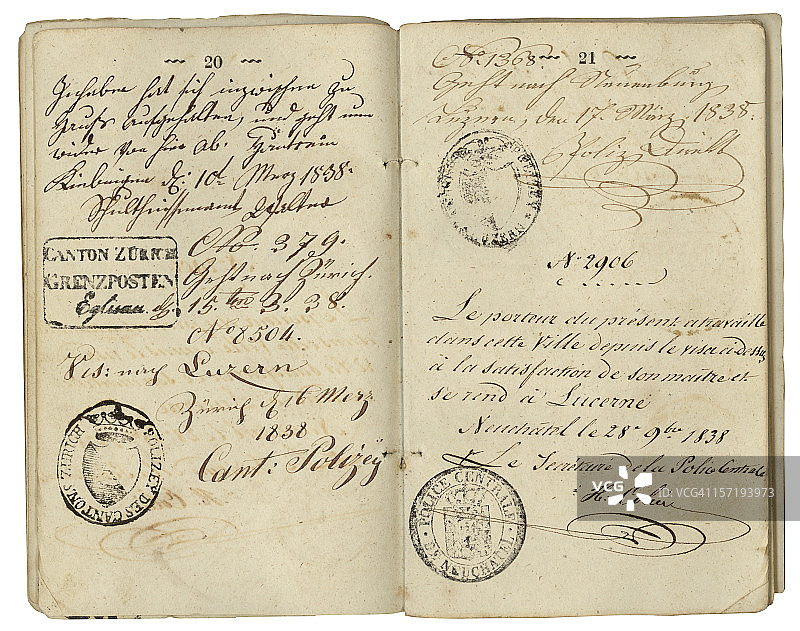 20
Inhaber hat sich inzwischen zu
Hauss aufgehalten, und geht nun
wider von hier ab.
d: 10t Merz 1838.
Walter
CANTON ZÜRICH
GRENZPOSTEN
Eglisau. d.
No. 379.
Geht nach Zürich.
15.ten 3. 38.
No 8504.
Vis: nach Luzern
Zürich d 16 Merz
1838
Cant: Polizey
POLIZEY DES CANTONS ZÜRICH
21
No 1368
Geht nach Neuenburg
Luzern, den 17. März 1838.
LUZERN
No 2906
Le porteur du présent a travaillé
dans cette Ville depuis le visa ci dessus
à la satisfaction de son maître et
se rend à Lucerne
Neuchâtel le 28 9bre 1838
Le Secrétaire de la Police Centrale
POLICE CENTRALE
DE NEUCHATEL
VCG
VCG41157193973